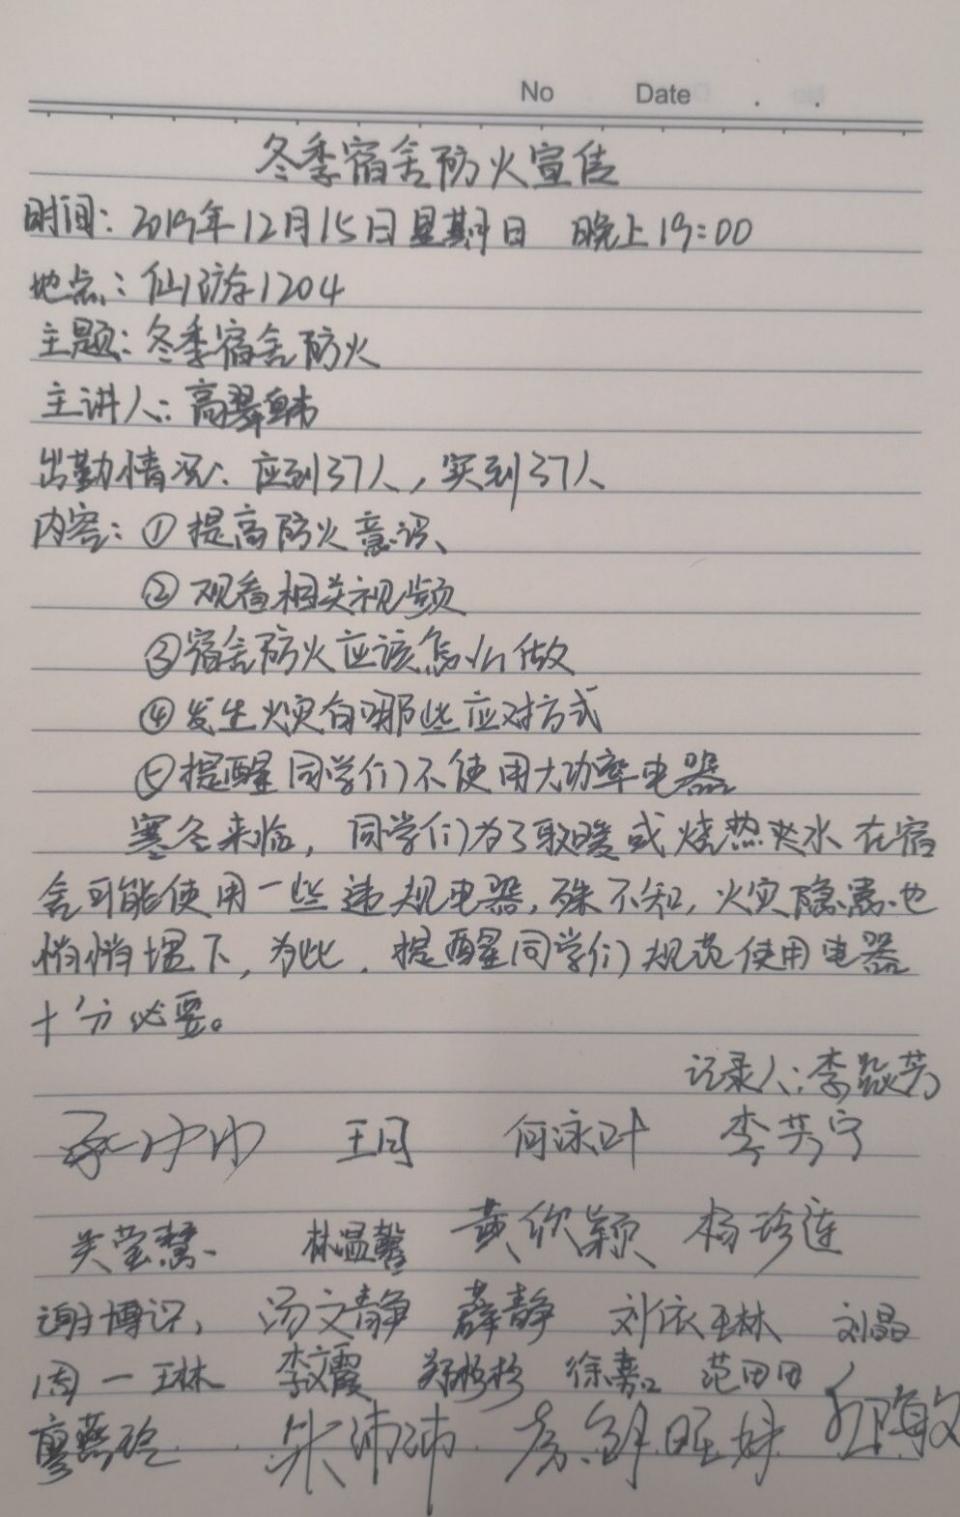 No Date . .
冬季宿舍防火宣传
时间：2019年12月15日星期日 晚上19:00
地点：仙游1204
主题：冬季宿舍防火
主讲人：高翠韩
出勤情况：应到37人，实到37人
内容：①提高防火意识、
②观看相关视频
③宿舍防火应该怎么做
④发生火灾有哪些应对方式
⑤提醒同学们不使用大功率电器
寒冬来临，同学们为了取暖或烧热水在宿
舍可能使用一些违规电器，殊不知，火灾隐患也
悄悄埋下，为此，提醒同学们规范使用电器
十分必要。
记录人：李焱芳
王同 何泳叶 李芳宁
吴莹慧 林温馨 黄欣颖 杨珍连
谢博识 汤文静 薛静 刘依琳 刘晶
周一琳 李文霞 郑杉杉 徐嘉 范田田
廖燕玲 朱沛沛